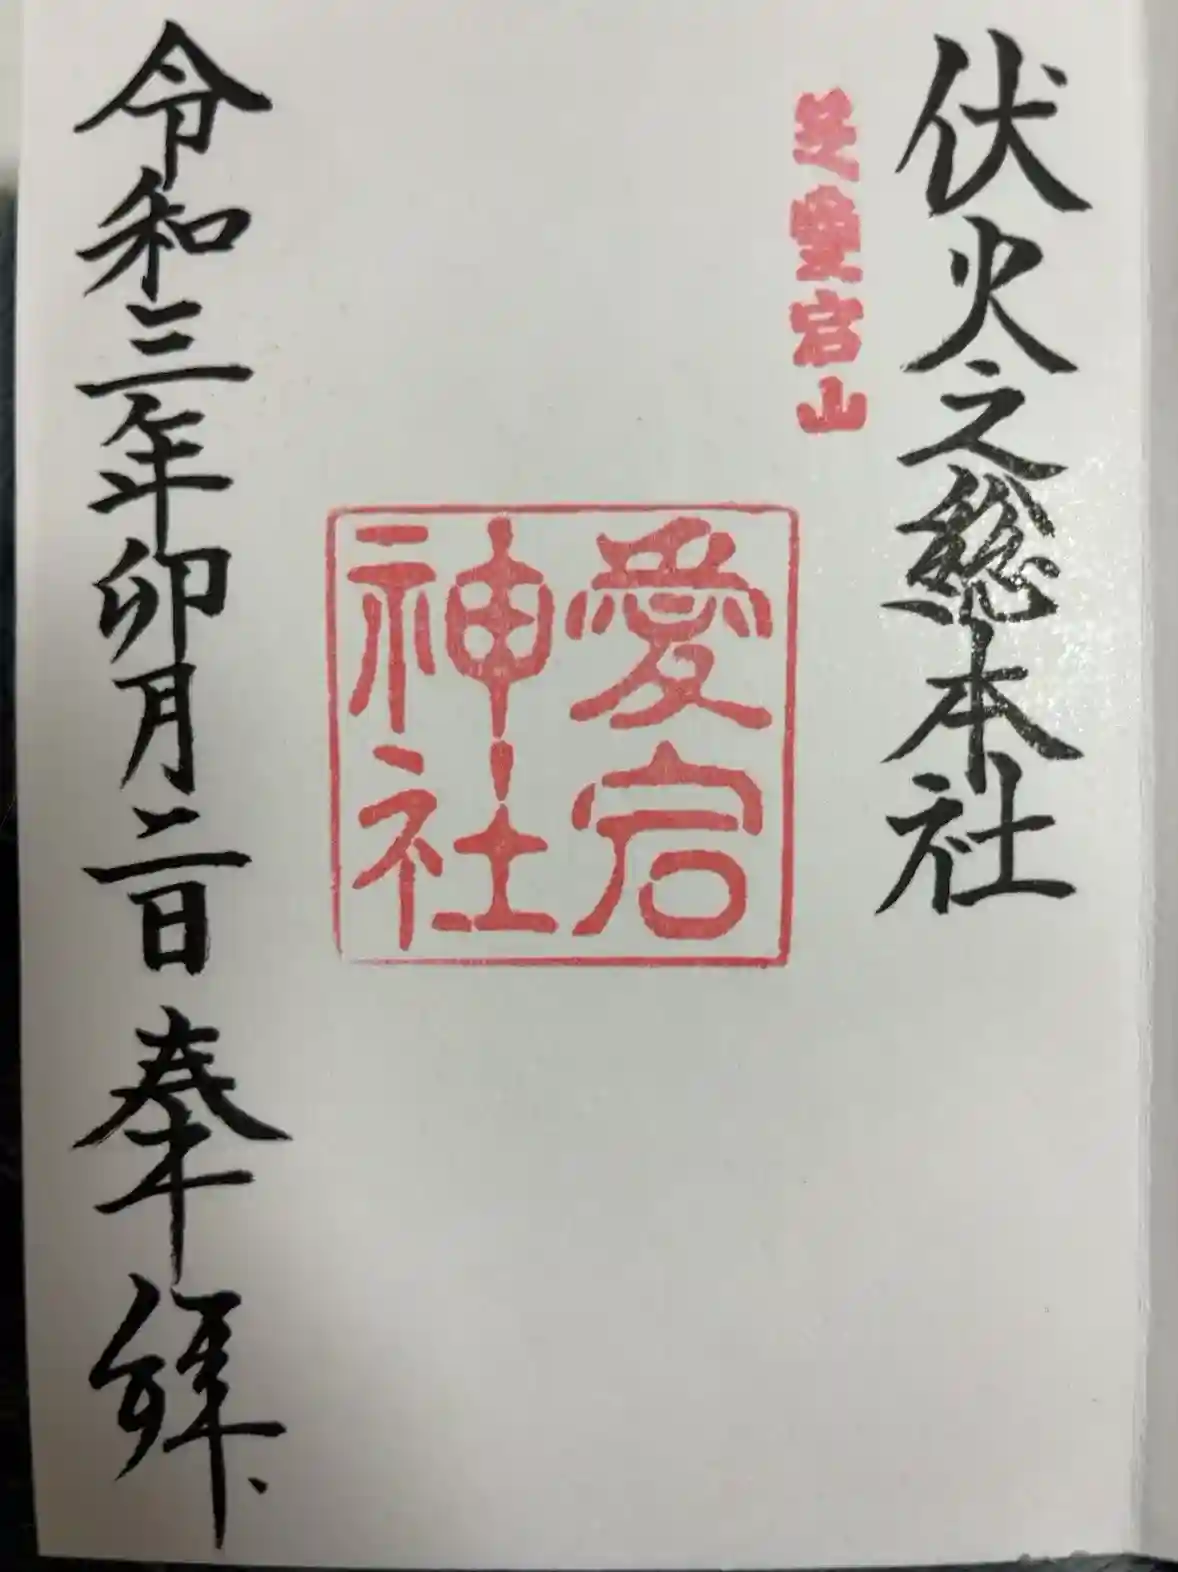 伏火之總本社
芝愛宕山
愛宕
神社
令和三年卯月二日奉拝